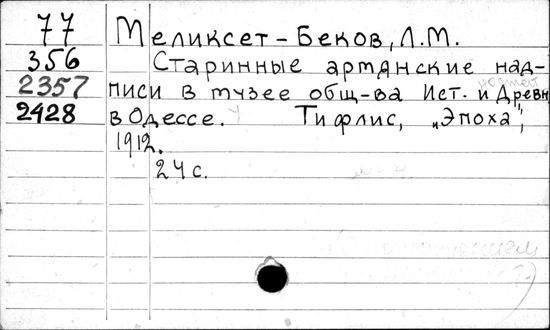 77 Меликсет-Беков, Л.М.
356 Старинные армянские над-
2357 писи в музее общ-ва Ист. и Древн
2428 в Одессе. Тифлис, „Эпоха",
1912.
24 с.